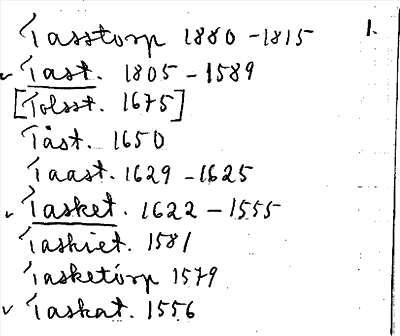 Tasstorp 1880-1815 1.
✓ Tast. 1805-1589
[Tolsst. 1675]
Tåst. 1650
Taast. 1629-1625
✓ Tasket. 1622-1555
Taskiet. 1581
Tasketorp 1579
✓ Taskat. 1556